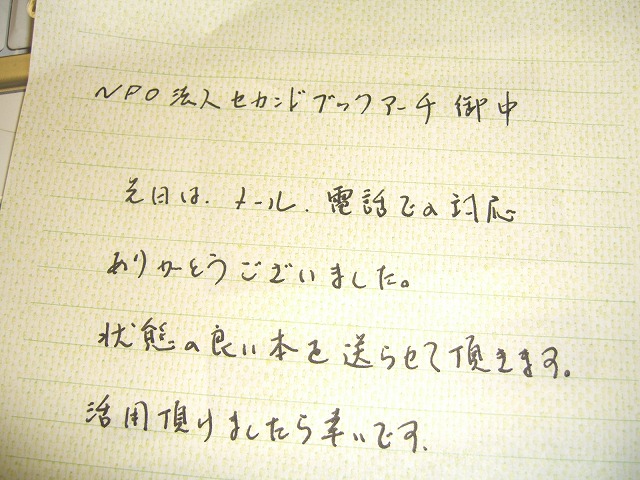 NPO法人セカンドブックアーチ御中
先日は、メール、電話での対応
ありがとうございました。
状態の良い本を送らせて頂きます。
活用頂けましたら幸いです。